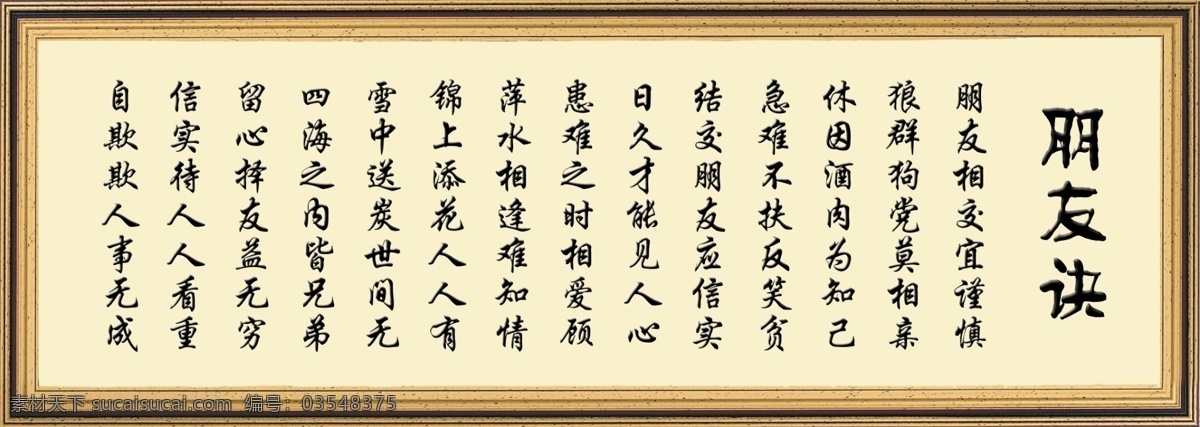 朋友诀
朋友相交宜谨慎
狼群狗党莫相亲
休因酒肉为知己
急难不扶反笑贫
结交朋友应信实
日久才能见人心
患难之时相爱顾
萍水相逢难知情
锦上添花人人有
雪中送炭世间无
四海之内皆兄弟
留心择友益无穷
信实待人人看重
自欺欺人事无成
素材天下 sucaisucai.com 编号：03548375